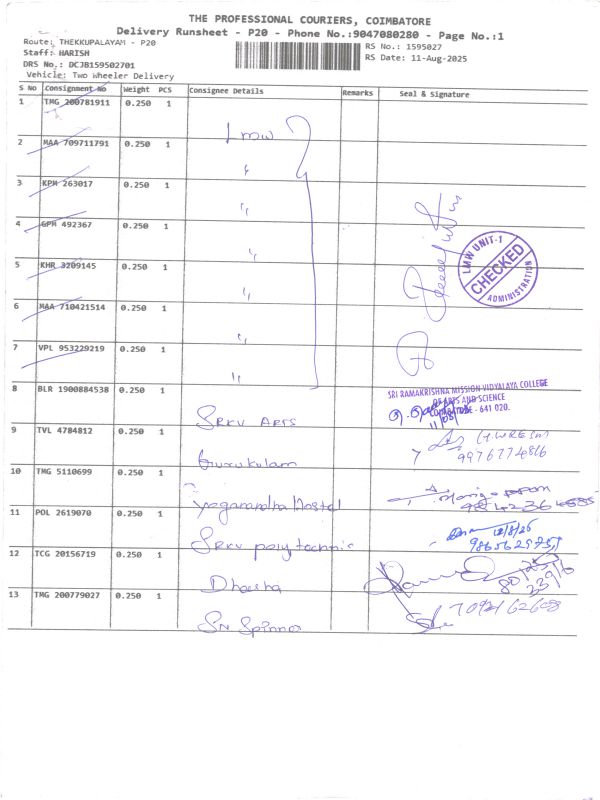 THE PROFESSIONAL COURIERS, COIMBATORE
Delivery Runsheet - P20 - Phone No.:9047080280 - Page No.:1
Route: THEKKUPALAYAM - P20
Staff: HARISH
DRS No.: DCJB159502701
Vehicle: Two Wheeler Delivery
RS No.: 1595027
RS Date: 11-Aug-2025
S No Consignment No Weight PCS Consignee Details Remarks Seal & Signature
1 TMG 200781911 0.250 1 Lmw
2 MAA 709711791 0.250 1 "
3 KPM 263017 0.250 1 "
4 GPM 492367 0.250 1 "
5 KHR 3209145 0.250 1 "
6 MAA 710421514 0.250 1 "
7 VPL 953229219 0.250 1 "
LMW UNIT-1
CHECKED
ADMINISTRATION
8 BLR 1900884538 0.250 1 SRKV ARTS
SRI RAMAKRISHNA MISSION VIDYALAYA COLLEGE
OF ARTS AND SCIENCE
COIMBATORE - 641 020.
9 TVL 4784812 0.250 1 Gurukulam
9976774816
10 TMG 5110699 0.250 1 Yoganandha Hostel
11 POL 2619070 0.250 1 SRKV polytechnic
12 TCG 20156719 0.250 1 Dharsha
13 TMG 200779027 0.250 1 SN Spinner